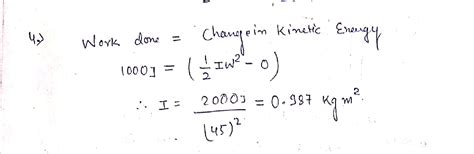 4.) Work done = Change in Kinetic Energy
1000J = (1/2 Iω² - 0)
∴ I = 2000J / (45)² = 0.987 kg m²